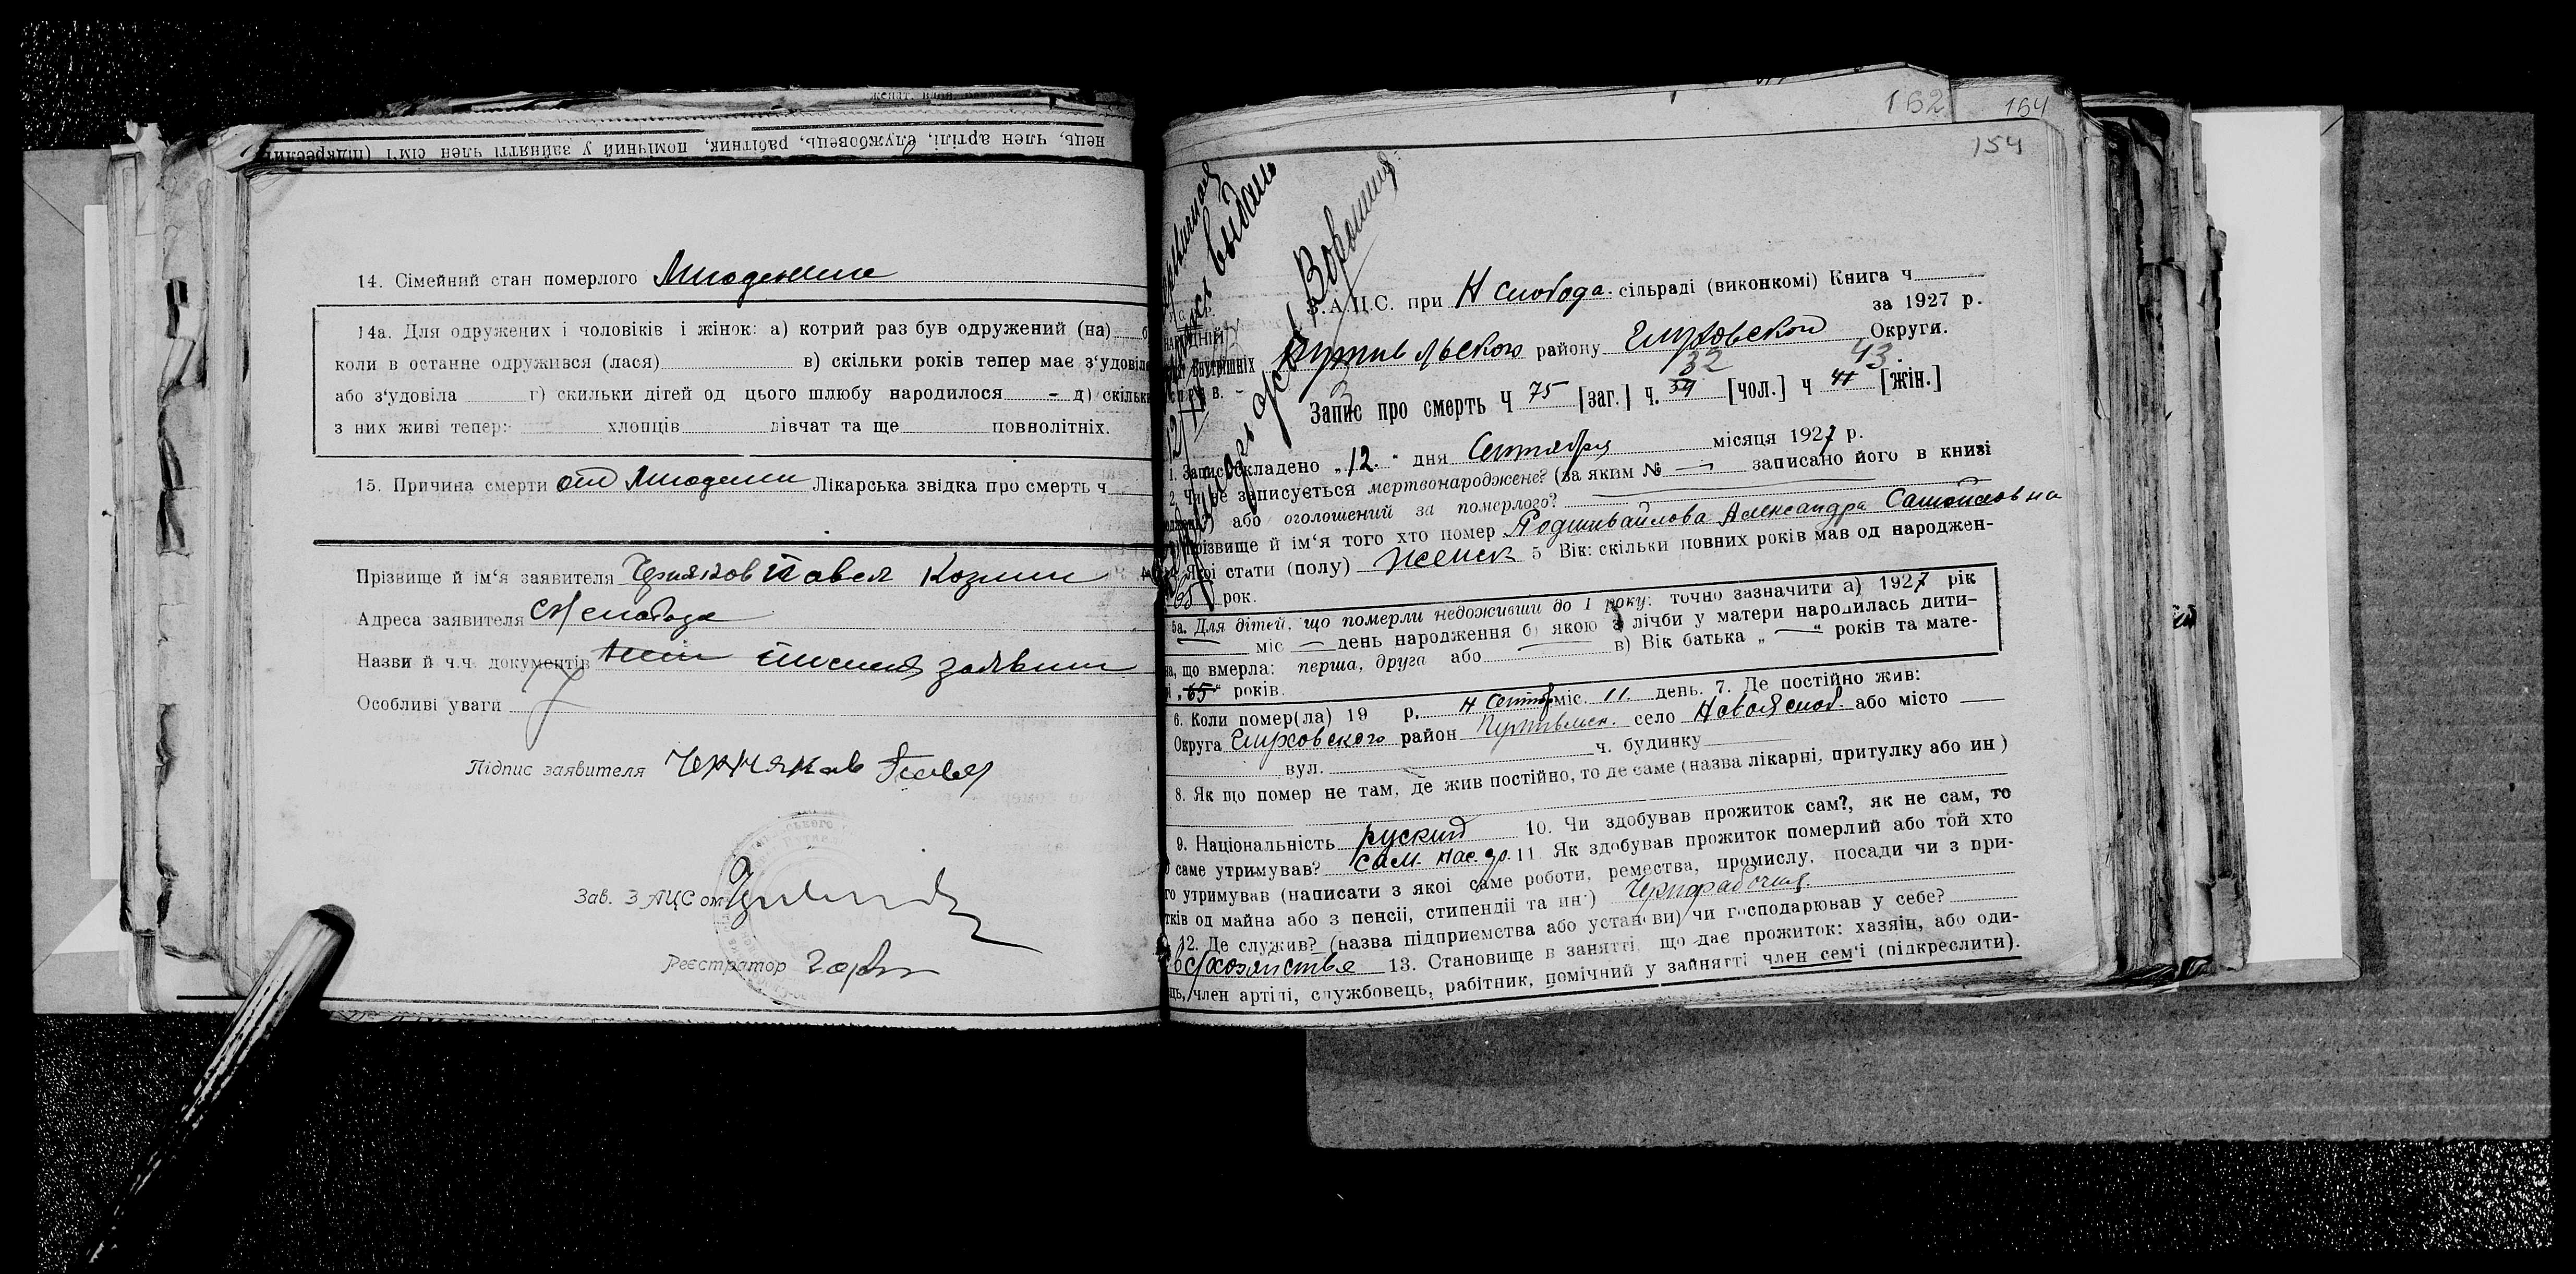 нець, член артілі, службовець, робітник, помічний у зайнятті член сім'ї (підкреслити
14. Сімейний стан померлого Младенец
14а. Для одружених і чоловіків і жінок: а) котрий раз був одружений (на)
коли в останне одружився (лася) в) скільки років тепер має з'удовіло
або з'удовіла г) скильки дітей од цього шлюбу народилося - д) скільки
з них живі тепер: хлопців дівчат та ще повнолітніх.
15. Причина смерти от Лікарська звідка про смерть ч
Прізвище й ім'я заявителя Черняков Павел Козмин
Адреса заявителя слобода
Назви й ч.ч. документів заявит
Особливі уваги
Підпис заявителя Черняков Павел
Зав. З АЦС ом
Реєстратор
162 164
154
выдан
З.А.Ц.С. при Н слобода сільраді (виконкомі) Книга ч
за 1927 р.
Путивльского району Глуховской Округи.
32 43
Запис про смерть Ч 75 [заг.] ч. 34 [чол.] ч 41 [жін.]
1. Запис складено „12“ дня Сентября місяця 1927 р.
2. Чи не записується мертвонароджене? (за яким № — записано його в книзі
або оголошений за померлого?
Прізвище й ім'я того хто помер Александра Самойловна
Якої стати (полу) женск 5 Вік: скільки повних років мав од народжен-
65 рок.
5а. Для дітей, що померли недоживши до 1 року: точно зазначити а) 1927 рік
— міс — день народження б) якою з лічби у матери народилась дити-
на, що вмерла: перша, друга або в) Вік батька „—“ років та мате-
рі „65“ років.
6. Коли помер(ла) 19 р. Сентяб міс. 11. день. 7. Де постійно жив:
Округа Глуховского район Путивльск. село Новая слоб. або місто —
вул. ч. будинку
8. Як що помер не там, де жив постійно, то де саме (назва лікарні, притулку або ин )
9. Національність руский 10. Чи здобував прожиток сам?, як не сам, то
саме утримував? сам. 11. Як здобував прожиток померлий або той хто
го утримував (написати з якої саме роботи, ремества, промислу, посади чи з при-
тків од майна або з пенсії, стипендії та ин.) Чернорабочий
12. Де служив? (назва підприємства або установи) чи господарював у себе?
с/хозяистве 13. Становище в занятті, що дає прожиток: хазяїн, або оди-
ць, член артілі, службовець, рабітник, помічний у зайнятті член сем'ї (підкреслити).